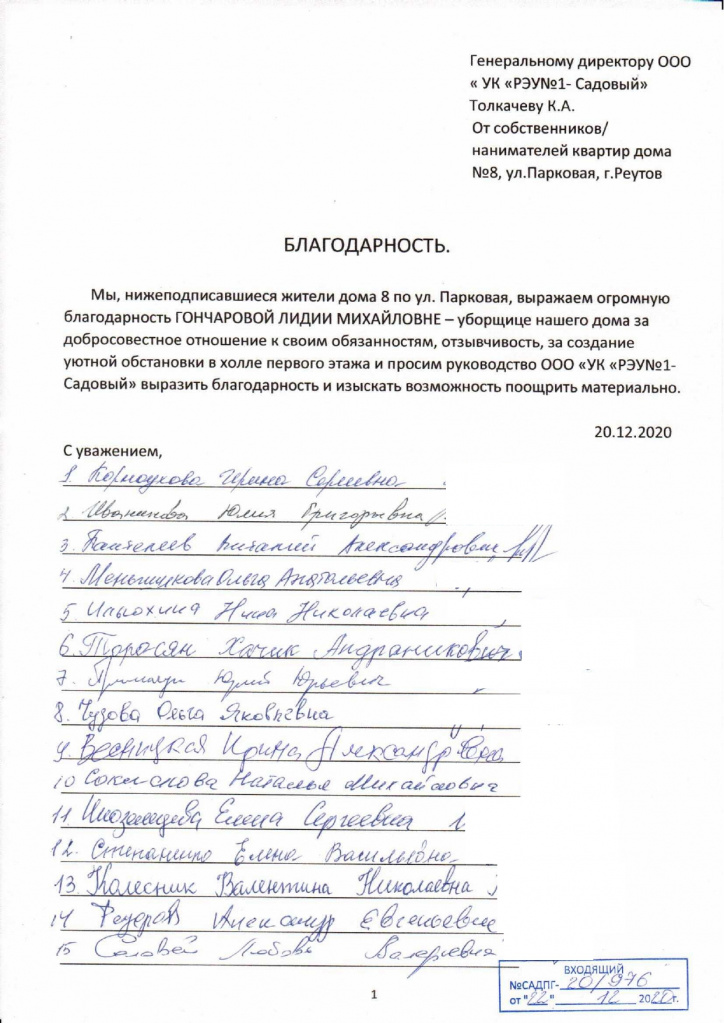 Генеральному директору ООО
« УК «РЭУ№1- Садовый»
Толкачеву К.А.
От собственников/
нанимателей квартир дома
№8, ул.Парковая, г.Реутов
БЛАГОДАРНОСТЬ.
Мы, нижеподписавшиеся жители дома 8 по ул. Парковая, выражаем огромную
благодарность ГОНЧАРОВОЙ ЛИДИИ МИХАЙЛОВНЕ – уборщице нашего дома за
добросовестное отношение к своим обязанностям, отзывчивость, за создание
уютной обстановки в холле первого этажа и просим руководство ООО «УК «РЭУ№1-
Садовый» выразить благодарность и изыскать возможность поощрить материально.
20.12.2020
С уважением,
1. Корноухова Ирина Сергеевна
2 Иванникова Юлия Григорьевна
3. Пантелеев Виталий Александрович
4. Меньшикова Ольга Анатольевна
5. Илюхина Нина Николаевна
6. Торосян Хачик Андраникович
7. Юрий Юрьевич
8. Чудова Ольга Яковлевна
9. Ирина Александровна
10 Наталья Михайловна
11 Елена Сергеевна
12. Елена Васильевна
13. Колесник Валентина Николаевна
14 Федоров Александр Евгеньевич
15 Соловей Любовь Валерьевна
ВХОДЯЩИЙ
№САДПГ- 20/976
от "22" 12 2020г.
1